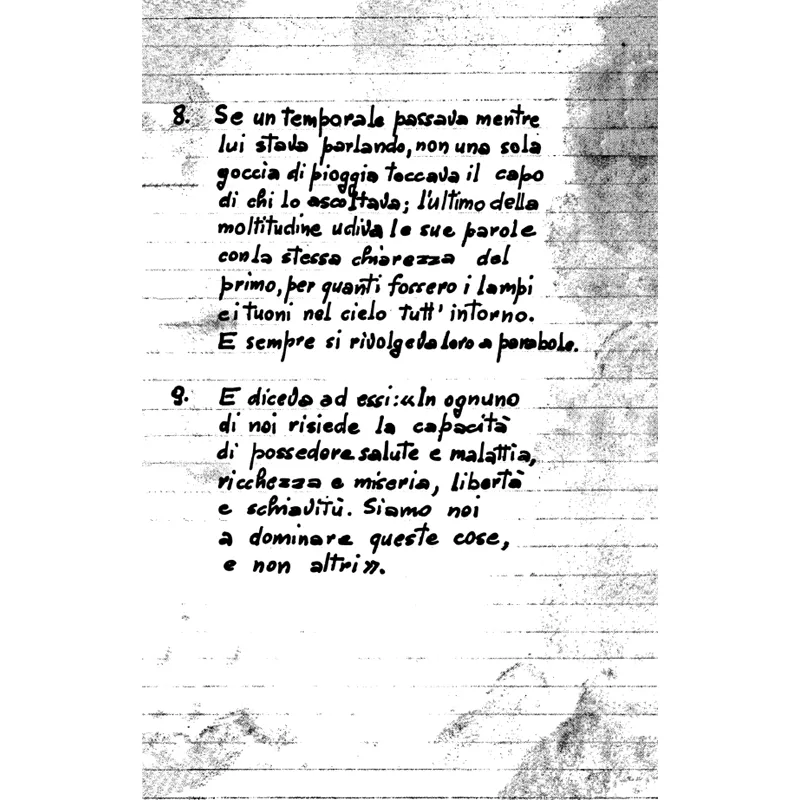 8. Se un temporale passava mentre
lui stava parlando, non una sola
goccia di pioggia toccava il capo
di chi lo ascoltava; l'ultimo della
moltitudine udiva le sue parole
con la stessa chiarezza del
primo, per quanti fossero i lampi
e i tuoni nel cielo tutt' intorno.
E sempre si rivolgeva loro a parabole.
9. E diceva ad essi: «In ognuno
di noi risiede la capacità
di possedere salute e malattia,
ricchezza e miseria, libertà
e schiavitù. Siamo noi
a dominare queste cose,
e non altri».